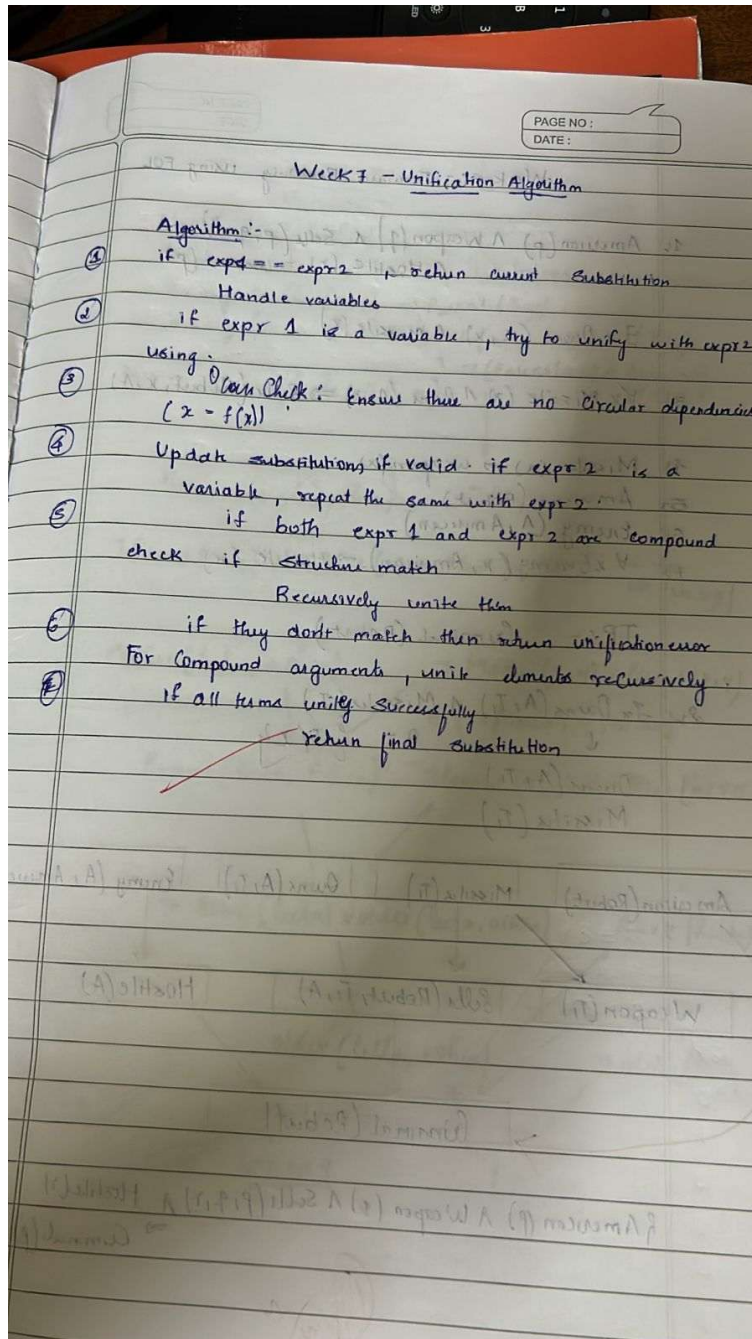 PAGE NO :
DATE :
Week 7 - Unification Algorithm
Algorithm :-
① if expr1 = = expr 2 , return current substitution
Handle variables
② if expr 1 is a variable , try to unify with expr 2
using .
③ Occurs Check : Ensure there are no circular dependencies
(x - f(x))
④ Update substitutions if valid . if expr 2 is a
variable , repeat the same with expr 2 .
⑤ if both expr 1 and expr 2 are compound
check if structure match
Recursively unite them
⑥ if they don't match then return unification error
For Compound arguments , unite elements recursively .
⑦ if all terms unify successfully
return final substitution